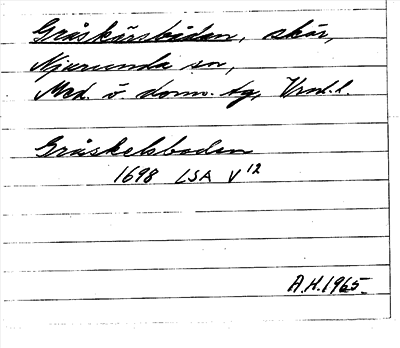 Gråskärsbådan, skär,
Njurunda sn,
Med. ö. doms. tg, Vrnl. l.
Gråskelsboden
1698 LSA V 12
A.H. 1965